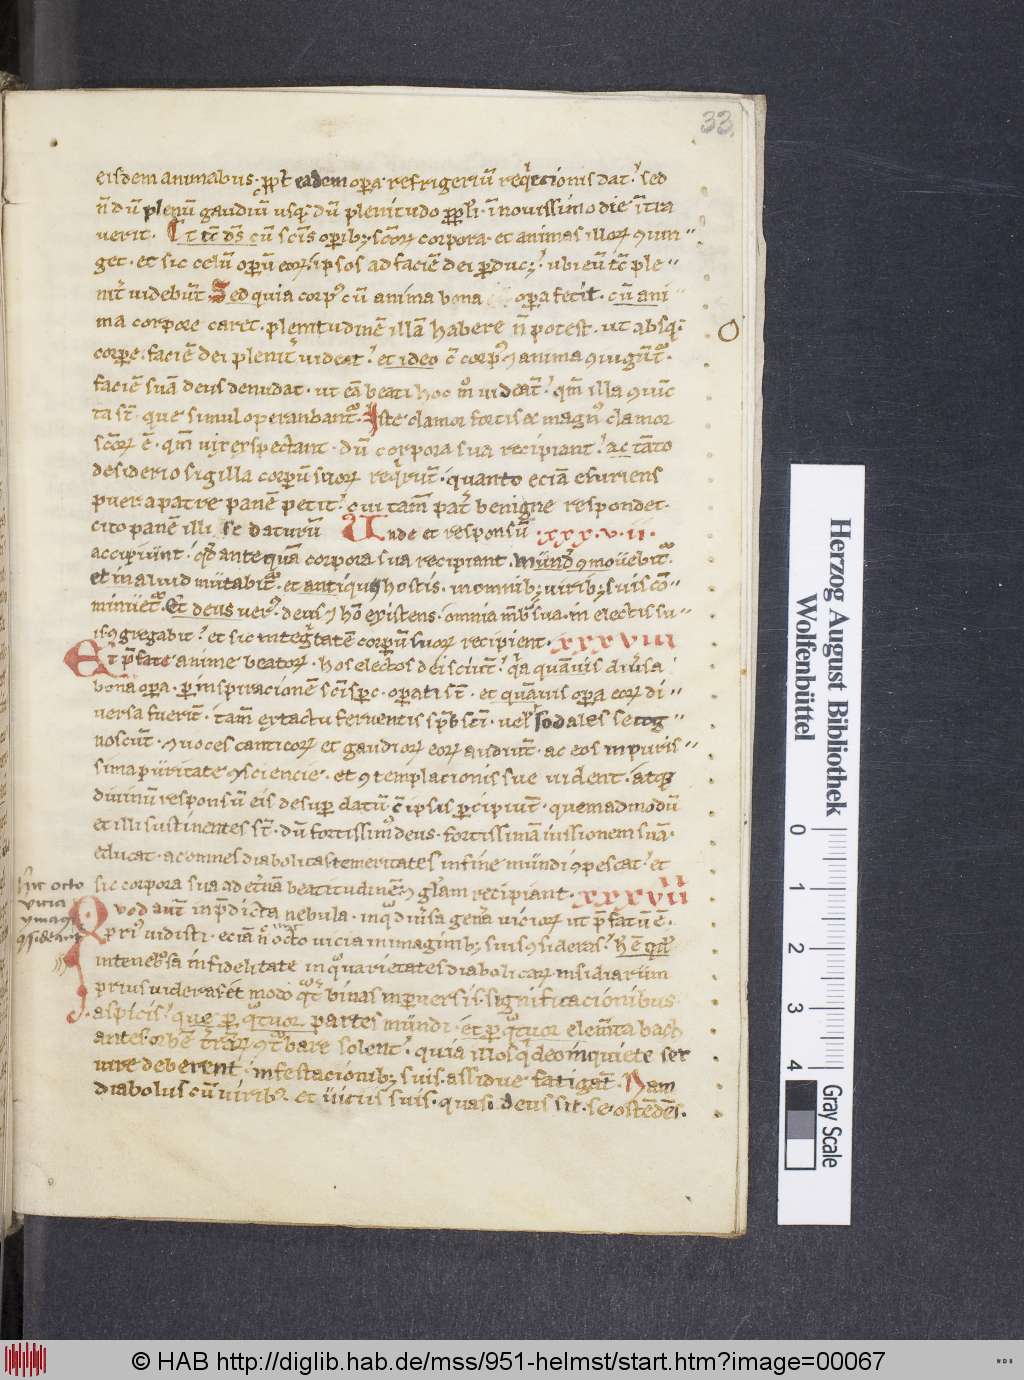 33
eisdem animabus · ꝓpt̄ eadem oꝑa refrigeriū req̇etionis dat᷑ sed
n̄ dū plenū gaudiū usq; dū plenitudo ꝓpl̄i · ī novissimo die īt̄ra
verit · Et t̄c d̄s cū scīs oꝑib; sc̄oꝝ corpora · et animas illoꝝ ꝯiun-
get · et sic cetū oꝑū eoꝝ ipsos ad faciē dei ꝑduc; · ubi eū t̄c ple-
nit᷑ videbūt Sed quia corp᷒ cū anima bona oꝑa fecit · cū ani
ma corpore caret · plenitudinē illā habere n̄ potest · ut absq;
corpore · faciē dei plenit᷑ videat · et ideo c̄ corp᷒ ⁊ anima ꝯiūgūt᷑ ·
faciē suā deus denudat · ut eā beati hoc m̊ videāt · qm̄ illa ꝯiūc
ta st̄ · que simul operanbant᷑ · Iste clamor fortis ex magn᷒ clamor
sc̄oꝝ ē · qm̄ expectant · dū corpora sua recipiant · ac tāto
desiderio sigilla corpūm suoꝝ req̇rūt · quanto eciā esuriens
puer a patre panē petit · cui tam̄ pat᷑ benigne respondet ·
cito panē illi se daturū Unde et responsū · xxxvii ·
accipiūnt · qd̄ antequā corpora sua recipiant · mūnd᷒ ꝯmovebit᷑
et in aliud mūtabit᷑ · et antiquꝯ hostis · in omnib; virib; suis cō-
minuet᷑ · Et deus ver᷒ · deus ⁊ hō existens · omnia mb̄ra sua · in electis su-
is ꝯgregabit · et sic integ̊tatē corpūm suoꝝ recipient · xxxviii
Et p̄fate anime beatoꝝ · hos electos dei sciūt · q̇a quāvis div̄sa
bona oꝑa · ꝑ inspiracionē scī spc · oꝑati st̄ · et quāvis oꝑa eoꝝ di-
versa fuerīt · tam̄ ex tactu ferventis sp̄s scī · vel᷑ sodales se cog-
noscūt · ⁊ voces canticoꝝ et gaudioꝝ eoꝝ audiūt · ac eos in puris-
sima pūritate ꝯsciencie · et ꝯtemplacionis sue vident · atq;
divinū responsū eis desuꝑ datū c̄ ipsis ꝑcipiūt · quemadmodū
et illi sustinentes st̄ · dū fortissim᷒ deus · fortissimā iussionem suā ·
educat · ac omnes diabolicas temeritates in fine mūndi ꝯpescat᷑ et
sic corpora sua ad et̄nā beatitudinē ⁊ gl̄am recipiant · xxxviii
Quod aūt in p̄dicta nebula · inqͣ div̄sa gen̄a vicioꝝ ut p̄fatū ē ·
pri᷒ vidisti · eciā n̊ octo vicia in imaginib; suis ꝯsideras · h̄ ē qd̄
in tenebrosa infidelitate inqͣ varietates diabolicarꝝ insidiarum
prius videras · et modo qͣt binas inꝑversis significacionibus
aspicis · que ꝑ qͣtuor partes mūndi · et ꝑ qͣtuor elem̄ta bach
antes orbē t̄raꝝ ꝯt᷑bare solent · quia illos q̇ deo inquiete ser
vire deberent · infestacionib; suis · assidue fatigāt · Nam
diabolus cū virib᷒ · et viciis suis · quasi deus sit · se ostēdēs ·
hic octo
vicia
ymagi
ꝯsiderat
© HAB http://diglib.hab.de/mss/951-helmst/start.htm?image=00067
Herzog August Bibliothek
Wolfenbüttel
0 1 2 3 4
Gray Scale